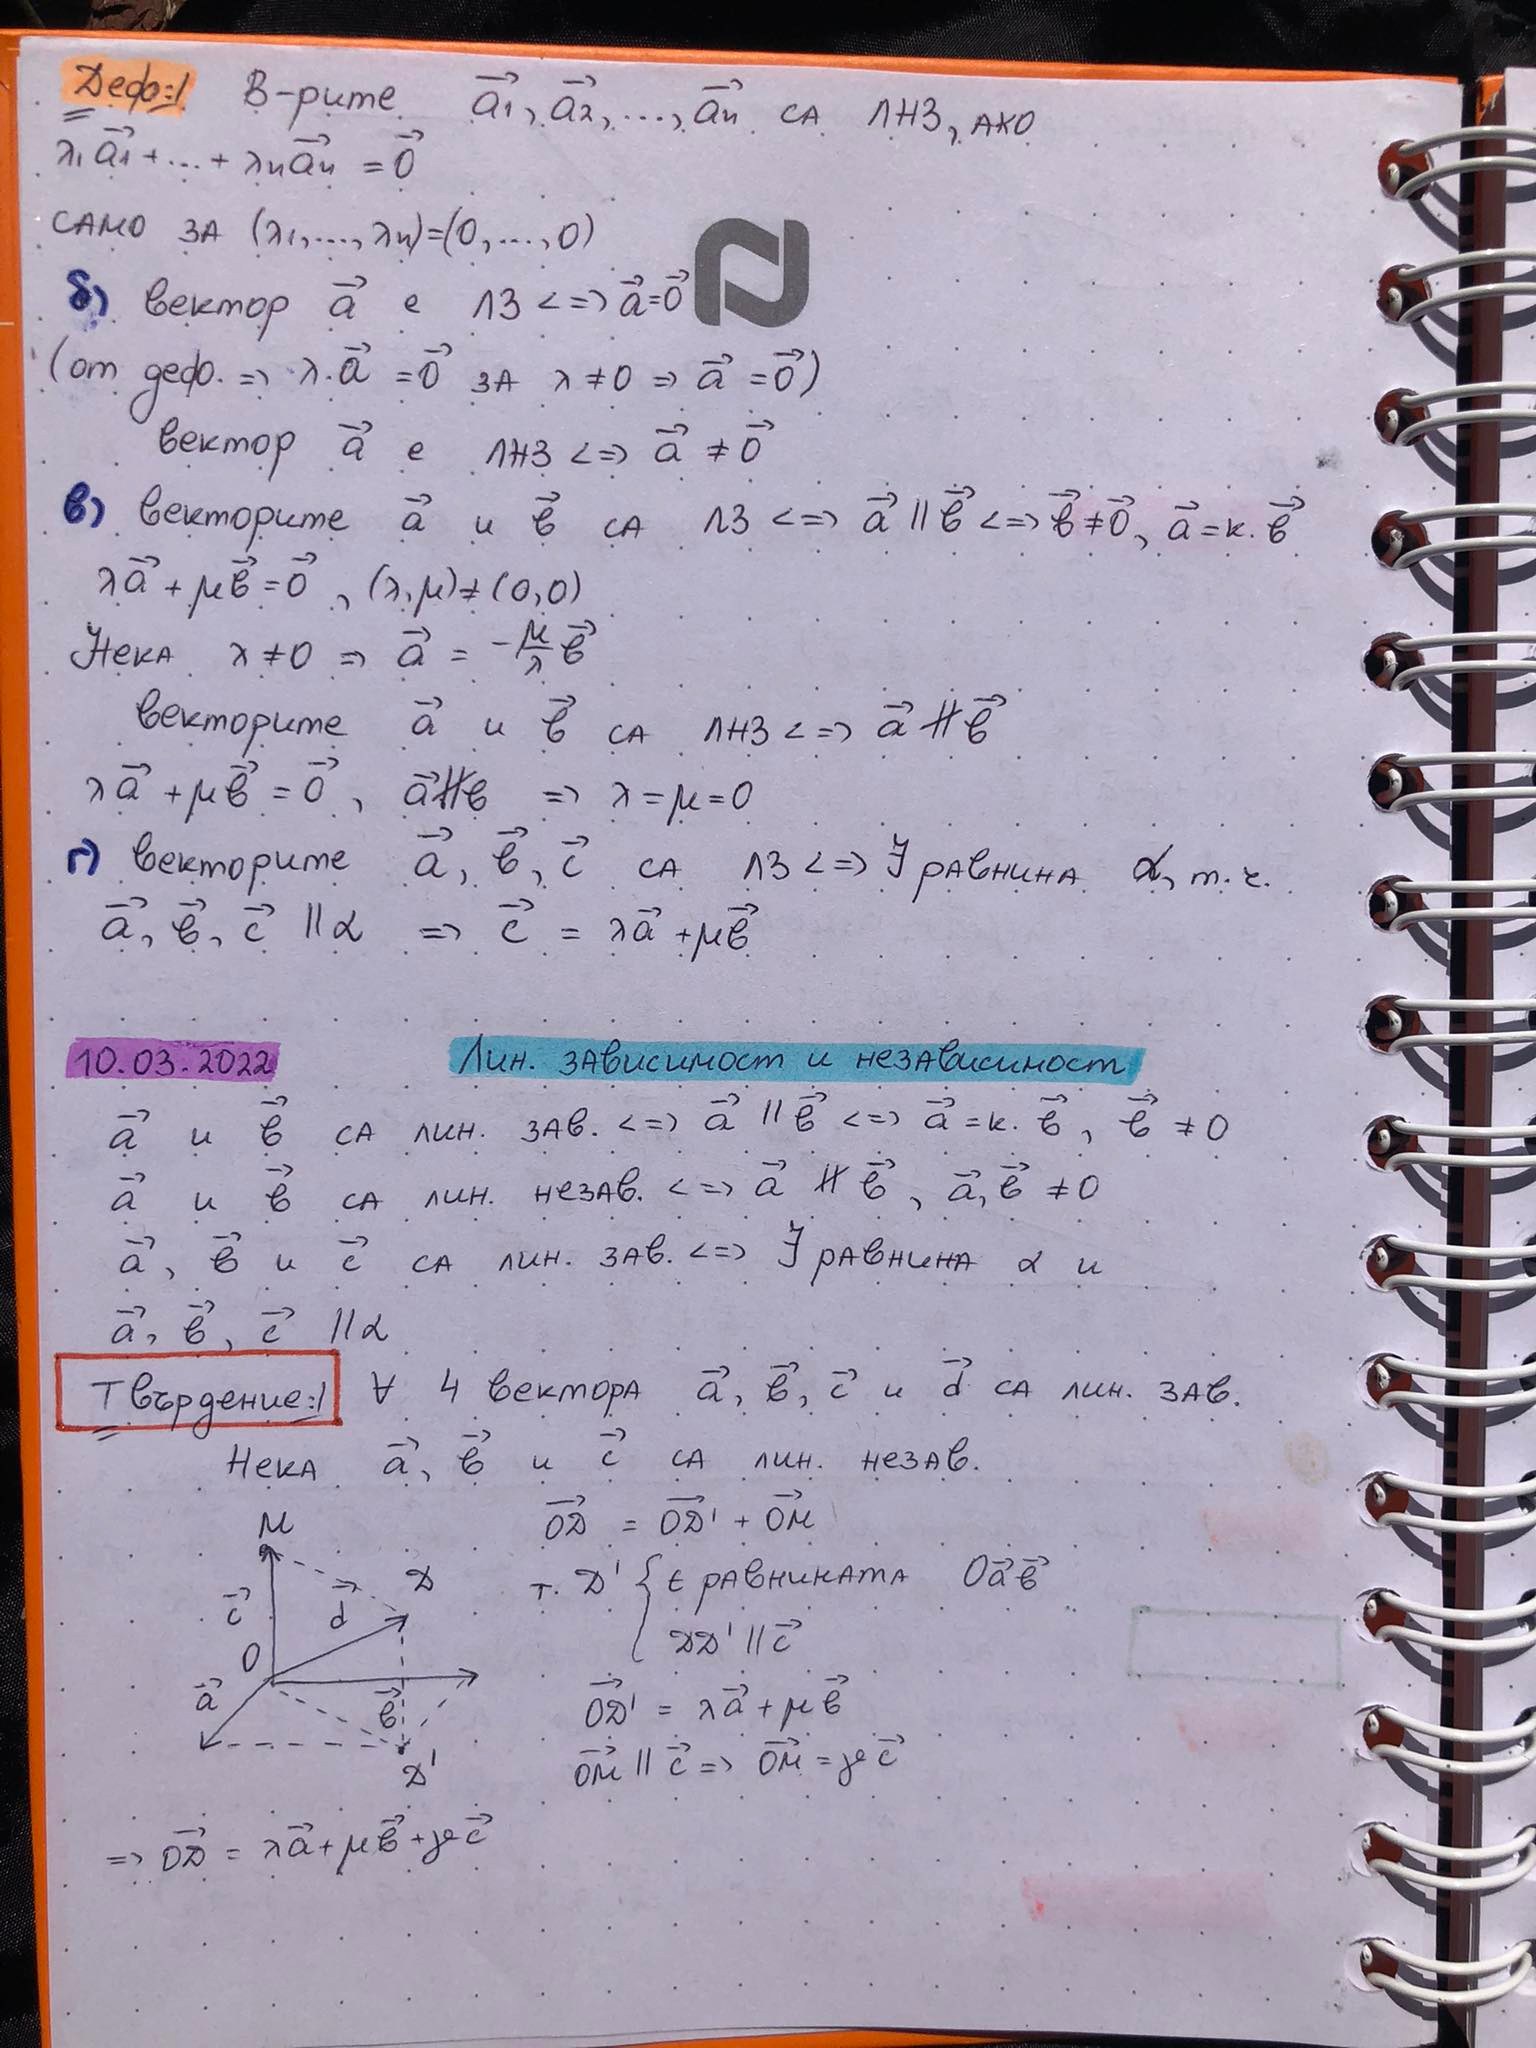 Деф:1 В-рите a⃗1, a⃗2, ..., a⃗n са ЛНЗ, ако
λ1a⃗1 + ... + λna⃗n = 0⃗
само за (λ1, ..., λn) = (0, ..., 0)
б) вектор a⃗ е ЛЗ <=> a⃗=0⃗
(от деф. => λ.a⃗ = 0⃗ за λ ≠ 0 => a⃗ = 0⃗)
вектор a⃗ е ЛНЗ <=> a⃗ ≠ 0⃗
в) векторите a⃗ и b⃗ са ЛЗ <=> a⃗ || b⃗ <=> b⃗ ≠ 0⃗, a⃗ = k. b⃗
λa⃗ + μb⃗ = 0⃗, (λ, μ) ≠ (0, 0)
Нека λ ≠ 0 => a⃗ = -μ/λ b⃗
векторите a⃗ и b⃗ са ЛНЗ <=> a⃗ ∦ b⃗
λa⃗ + μb⃗ = 0⃗, a⃗ ∦ b => λ = μ = 0
г) векторите a⃗, b⃗, c⃗ са ЛЗ <=> ∃ равнина α, т.ч.
a⃗, b⃗, c⃗ || α => c⃗ = λa⃗ + μb⃗
10.03.2022 Лин. зависимост и независимост
a⃗ и b⃗ са лин. зав. <=> a⃗ || b⃗ <=> a⃗ = k. b⃗, b⃗ ≠ 0
a⃗ и b⃗ са лин. незав. <=> a⃗ ∦ b⃗, a⃗, b⃗ ≠ 0
a⃗, b⃗ и c⃗ са лин. зав. <=> ∃ равнина α и
a⃗, b⃗, c⃗ || α
Твърдение:1 ∀ 4 вектора a⃗, b⃗, c⃗ и d⃗ са лин. зав.
Нека a⃗, b⃗ и c⃗ са лин. незав.
M
c⃗
d⃗
D
O
a⃗
b⃗
D'
OD⃗ = OD⃗' + OM⃗
т. D' { ∈ равнината Oa⃗b⃗
DD' || c⃗
OD⃗' = λa⃗ + μb⃗
OM⃗ || c⃗ => OM⃗ = γc⃗
=> OD⃗ = λa⃗ + μb⃗ + γc⃗